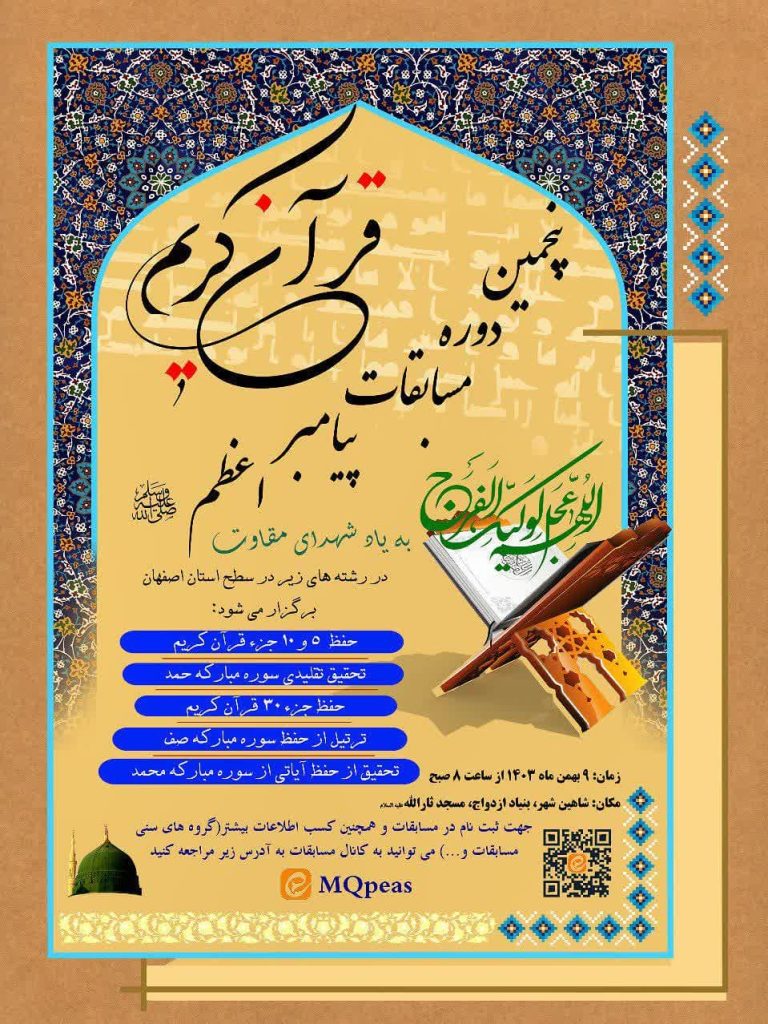 پنجمین
دوره
مسابقات
قرآن کریم
پیامبر
اعظم
صلی الله علیه و سلم
اللهم عجل لولیک الفرج
به یاد شهدای مقاوت
در رشته های زیر در سطح استان اصفهان
برگزار می شود:
حفظ ۵ و ۱۰ جزء قرآن کریم
تحقیق تقلیدی سوره مبارکه حمد
حفظ جزء ۳۰ قرآن کریم
ترتیل از حفظ سوره مبارکه صف
تحقیق از حفظ آیاتی از سوره مبارکه محمد
زمان: ۹ بهمن ماه ۱۴۰۳ از ساعت ۸ صبح
مکان: شاهین شهر، بنیاد ازدواج، مسجد ثارالله علیه السلام
جهت ثبت نام در مسابقات و همچنین کسب اطلاعات بیشتر(گروه های سنی
مسابقات و...) می توانید به کانال مسابقات به آدرس زیر مراجعه کنید
MQpeas